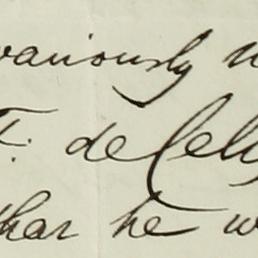 variously
T. de Cel
that he w